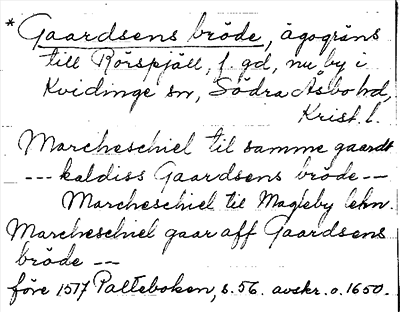 * Gaardsens bröde, ägogräns
till Rörspjäll, f. gd, nu by i
Kvidinge sn, Södra Åsbo hd,
Krist. l.
Marcheschiel til samme gaardt
--- kaldiss Gaardsens bröde --
Marcheschiel til Magleby lehn.
Marcheschiel gaar aff Gaardsens
bröde --
före 1517 Palteboken, s. 56. avskr. o. 1650.